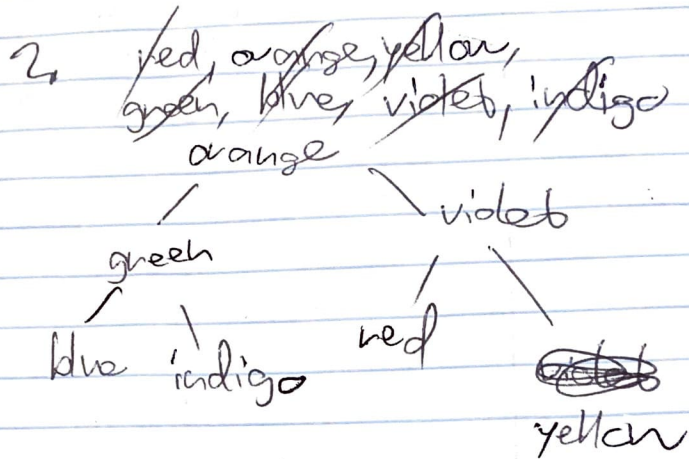 2, red, orange, yellow,
green, blue, violet, indigo
orange
violet
green
blue indigo red
yellow